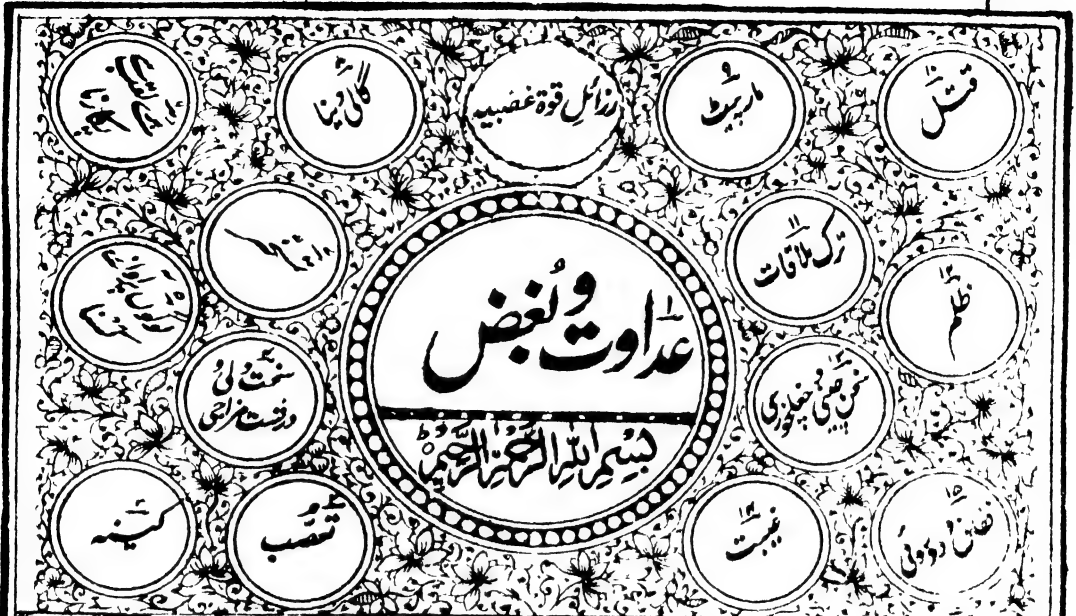 رزائلِ قوۃ غضبیہ
قتل
مارپیٹ
گالی دینا
ترک ملاقات
ظلم
عداوت و بُغض
بِسْمِ اللهِ الرَّحْمٰنِ الرَّحِيْمِ
سخن چینی و چغلخوری
سخت دلی و
درشت مزاجی
نفاق و دوروئی
غیبت
تعصّب
کینہ